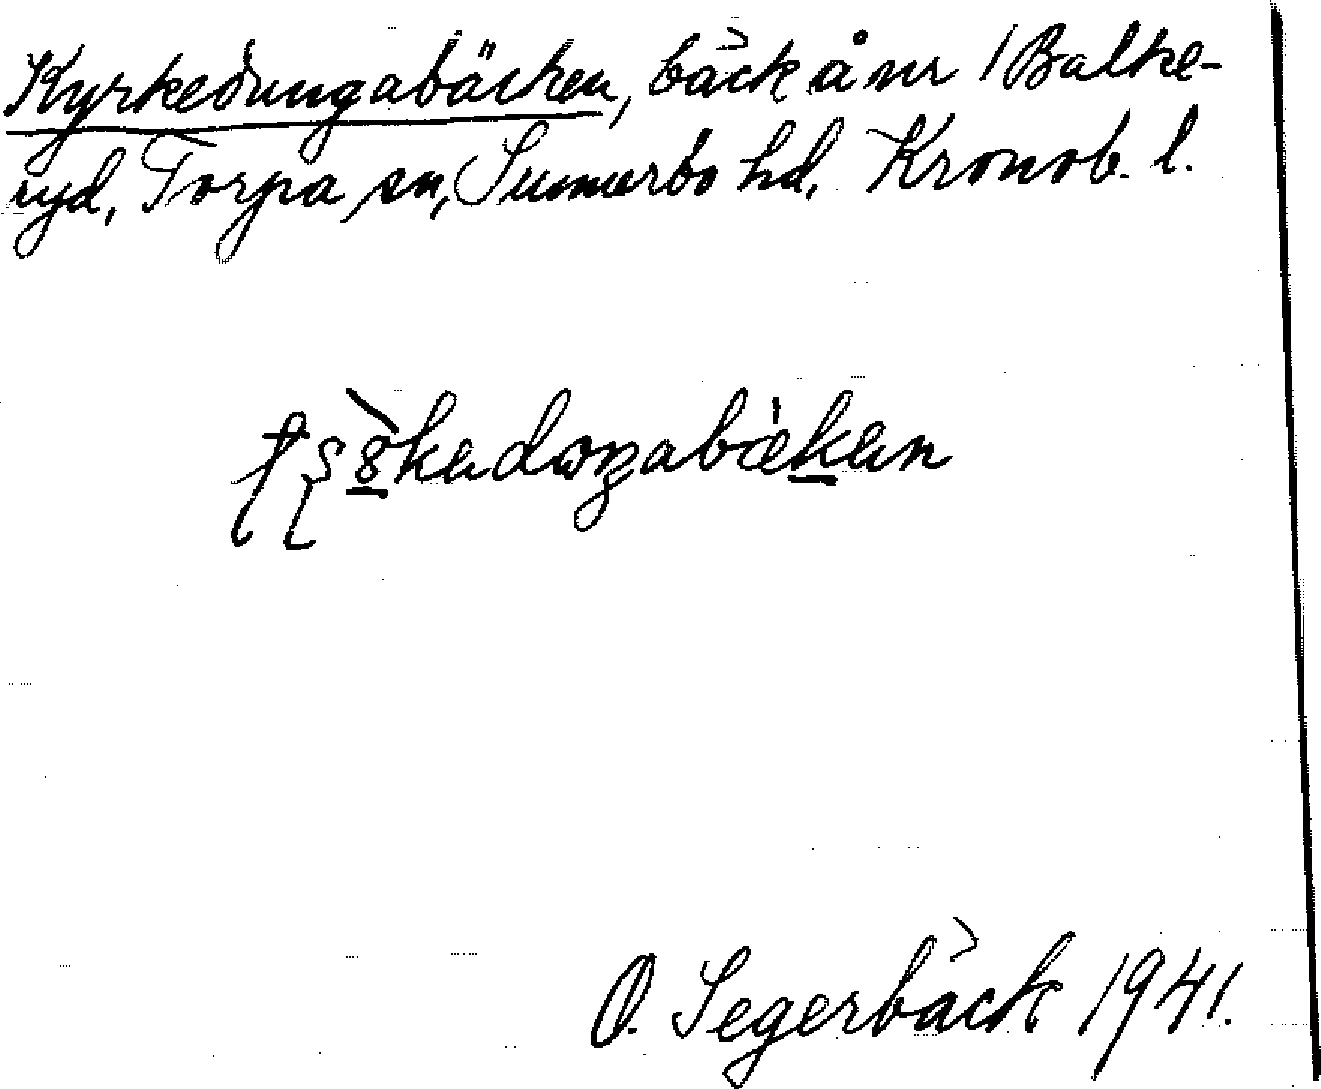 Kyrkedungabäcken, bäck å nr 1 Balke-
ryd, Torpa sn, Sunnerbo hd. Kronob. l.
O. Segerbäck 1941.